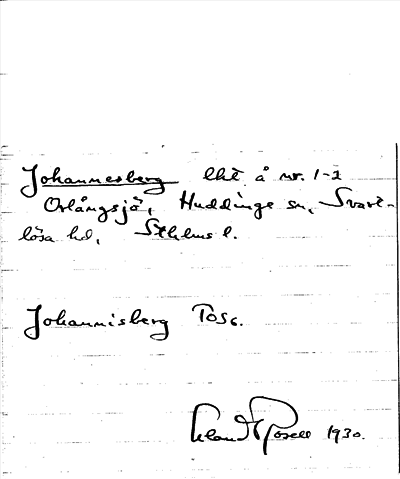 Johannesberg lht å nr. 1-2
Orlångsjö, Huddinge sn, Svart-
lösa hd, Sthlms l.
Johannisberg
1930.